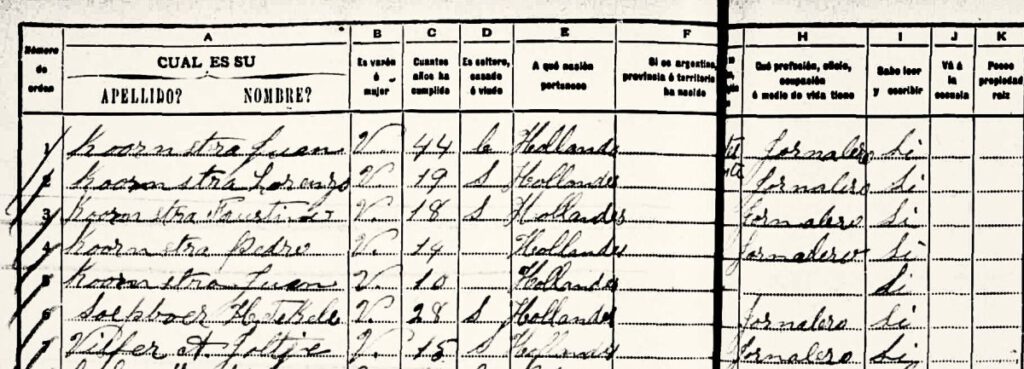 Número de orden | A CUAL ES SU APELLIDO? NOMBRE? | B Es varón ó mujer | C Cuantos años ha cumplido | D Es soltero, casado ó viudo | E A qué nación pertenece | F Si es argentino, provincia ó territorio ha nacido | H Qué profesión, oficio, ocupación ó medio de vida tiene | I Sabe leer y escribir | J Vá á la escuela | K Posee propiedad raiz
1 Koornstra Juan V. 44 C Hollandes Jornalero Si
2 Koornstra Lorenzo V. 19 S Hollandes Jornalero Si
3 Koornstra V. 18 S Hollandes Jornalero Si
4 Koornstra Pedro V. 14 Hollandes Jornalero Si
5 Koornstra Juan V. 10 Hollandes Si
6 Soepboer V. 28 S Hollandes Jornalero Si
7 V. 15 S Hollandes Jornalero Si